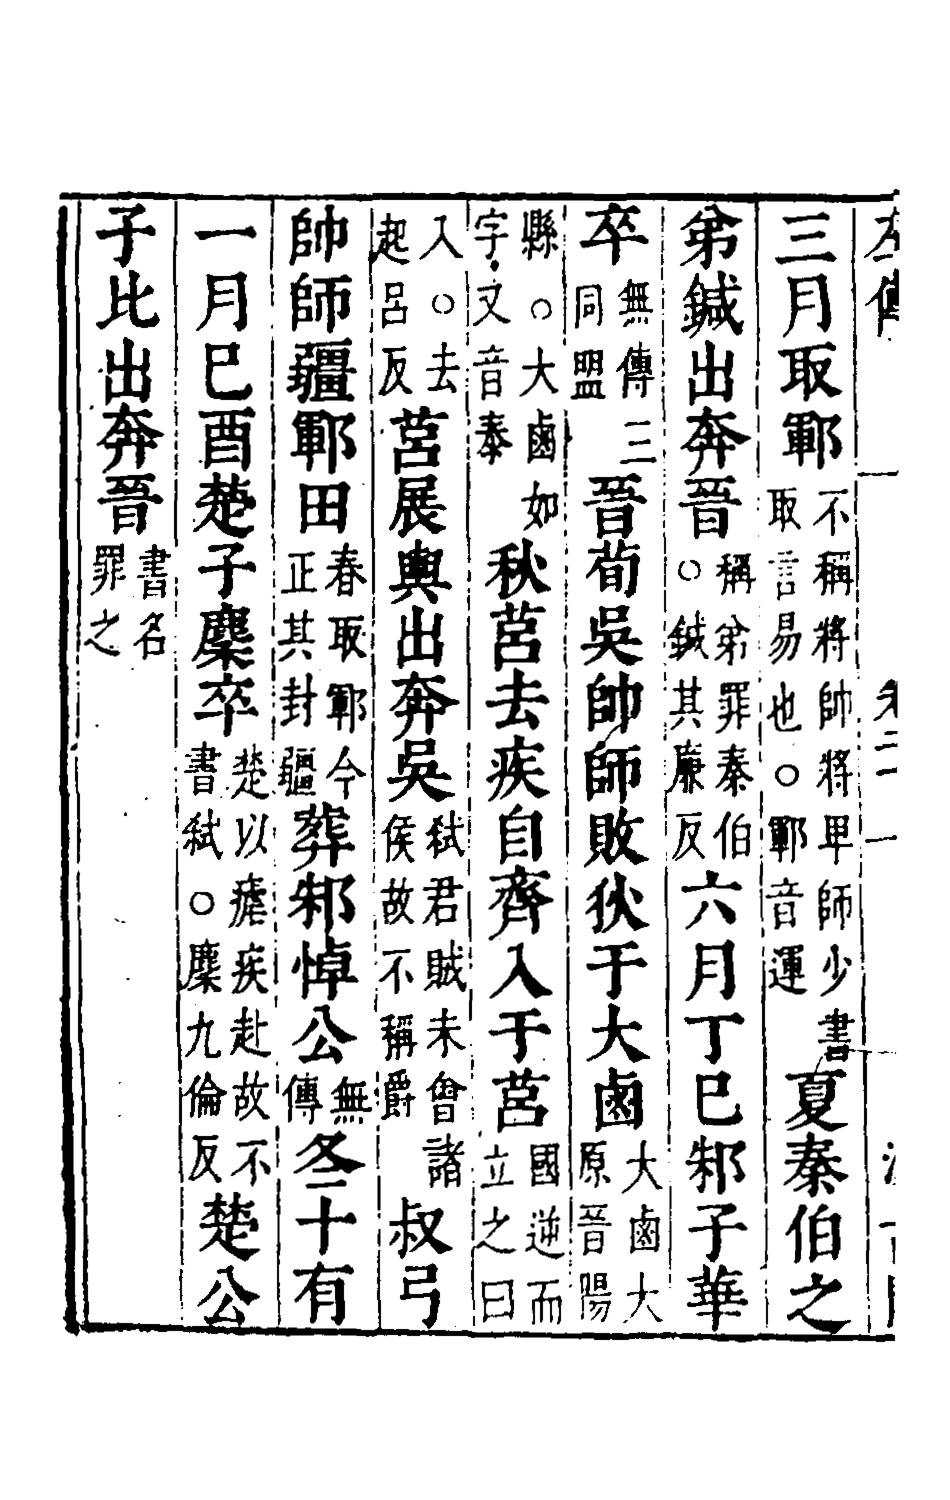 左傳
三月取鄆不稱將帥將卑師少書取言易也○鄆音運夏秦伯之
弟鍼出奔晉稱弟罪秦伯○鍼其廉反六月丁巳邾子華
卒無傳三同盟晉荀吳帥師敗狄于大鹵大鹵大原晉陽
縣○大鹵如字又音泰秋莒去疾自齊入于莒國逆而立之曰
入○去起呂反莒展輿出奔吳弑君賊未會諸侯故不稱爵叔弓
帥師疆鄆田春取鄆今正其封疆葬邾悼公無傳冬十有
一月己酉楚子麇卒楚以瘧疾赴故不書弑○麇九倫反楚公
子比出奔晉書名罪之